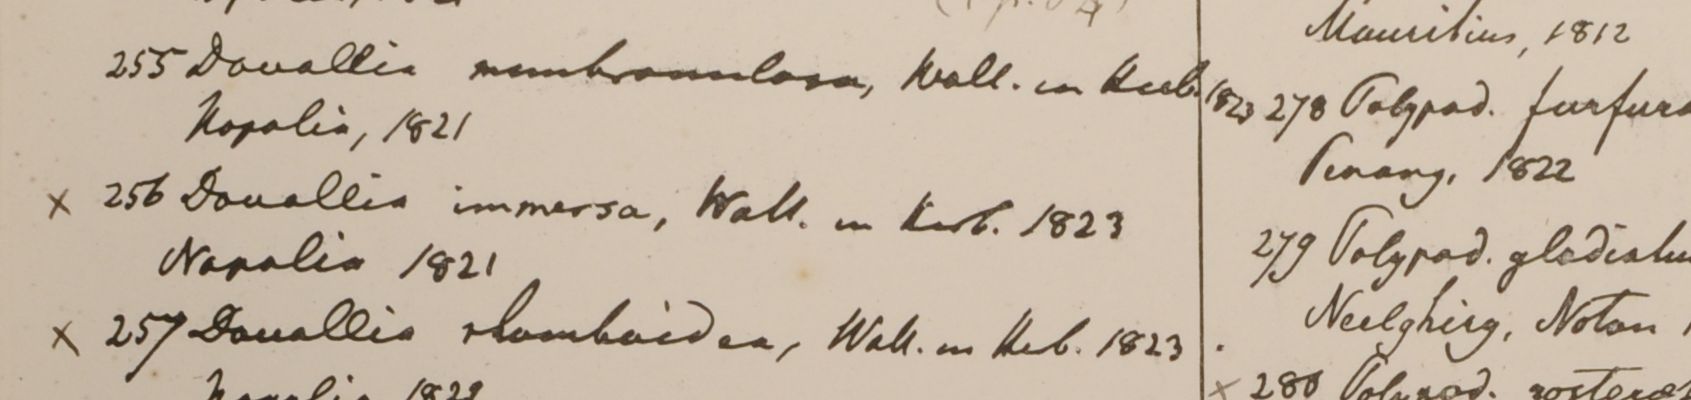 255 Davallia membranulosa, Wall. in Herb. 1823
Napalia, 1821
× 256 Davallia immersa, Wall. in Herb. 1823
Napalia 1821
× 257 Davallia rhomboidea, Wall. in Herb. 1823
Napalia 1822
Mauritius, 1812
278 Polypod. furfura
Penang, 1822
279 Polypod. gladiatu
Neelgherg, Noton
× 280 Polypod.